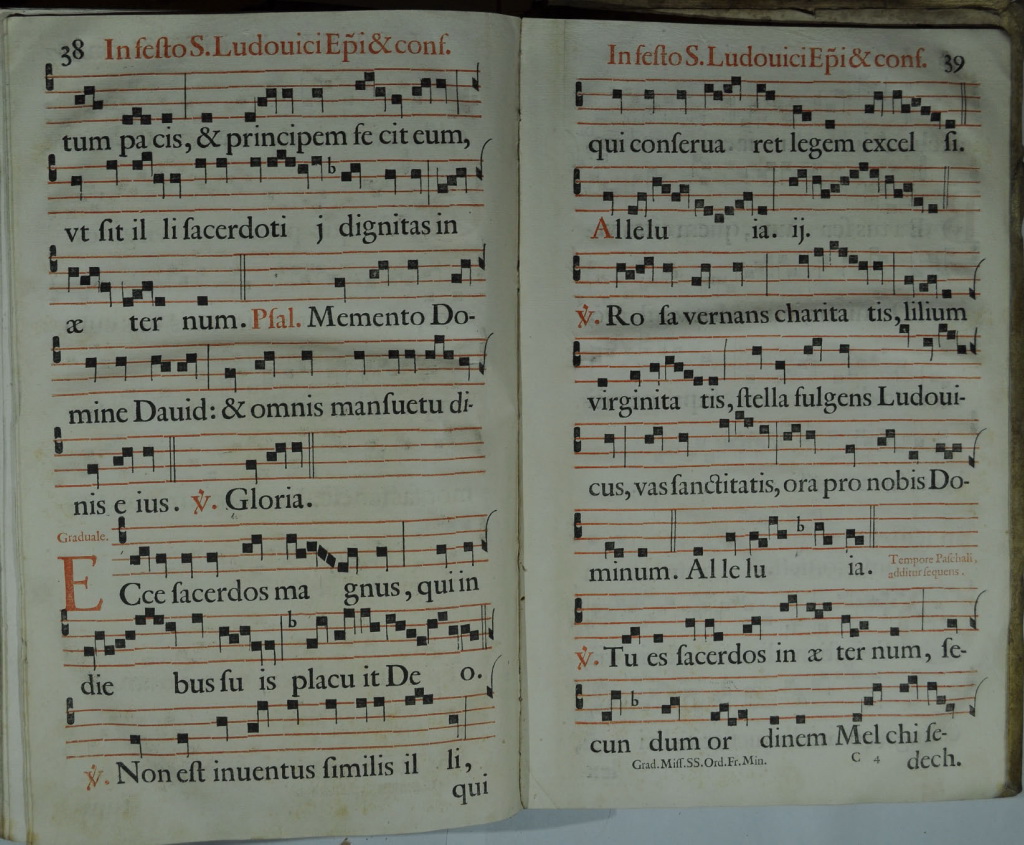 38 In festo S. Ludouici Ep̃i & conf.
tum pa cis, & principem fe cit eum,
vt ſit il li ſacerdoti j dignitas in
æ ter num. Pſal. Memento Do-
mine Dauid: & omnis manſuetu di-
nis e ius. ℣. Gloria.
Graduale.
ECce ſacerdos ma gnus, qui in
die bus ſu is placu it De o.
℣. Non eſt inuentus ſimilis il li,
qui
In feſto S. Ludouici Ep̃i & conf. 39
qui conſerua ret legem excel ſi.
Allelu ia. ij.
℣. Ro ſa vernans charita tis, lilium
virginita tis, ſtella fulgens Ludoui-
cus, vas ſanctitatis, ora pro nobis Do-
minum. Al le lu ia. Tempore Paſchali,
additur ſequens.
℣. Tu es ſacerdos in æ ter num, ſe-
cun dum or dinem Mel chi ſe-
Grad. Miſſ. SS. Ord. Fr. Min. C 4 dech.